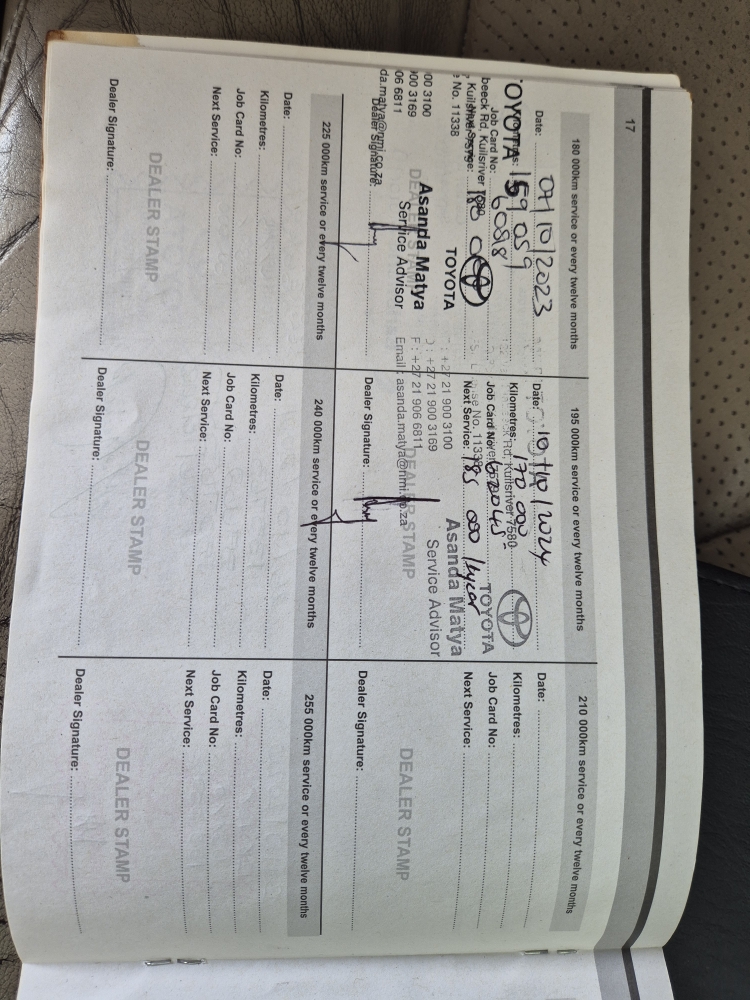 17
180 000km service or every twelve months
Date: 04/10/2023
Kilometres: 159 059
Job Card No: 60818
Next Service: 180 0
TOYOTA
beeck Rd, Kuilsriver 7580
, Kuilsriver 7579
e No. 11338
TOYOTA
00 3100
900 3169
06 6811
da.matya@nmi.co.za
Asanda Matya
Service Advisor
DEALER STAMP
Dealer Signature:
195 000km service or every twelve months
Date: 10/10/2024
Kilometres: 170 000
eck Rd, Kuilsriver 7580
Job Card No:
Next Service: 185 000 /1year
se No. 11338
TOYOTA
: +27 21 900 3100
: +27 21 900 3169
F : +27 21 906 6811
Email : asanda.matya@nmi.co.za
Asanda Matya
Service Advisor
DEALER STAMP
Dealer Signature:
210 000km service or every twelve months
Date:
Kilometres:
Job Card No:
Next Service:
DEALER STAMP
Dealer Signature:
225 000km service or every twelve months
Date:
Kilometres:
Job Card No:
Next Service:
DEALER STAMP
Dealer Signature:
240 000km service or every twelve months
Date:
Kilometres:
Job Card No:
Next Service:
DEALER STAMP
Dealer Signature:
255 000km service or every twelve months
Date:
Kilometres:
Job Card No:
Next Service:
DEALER STAMP
Dealer Signature: